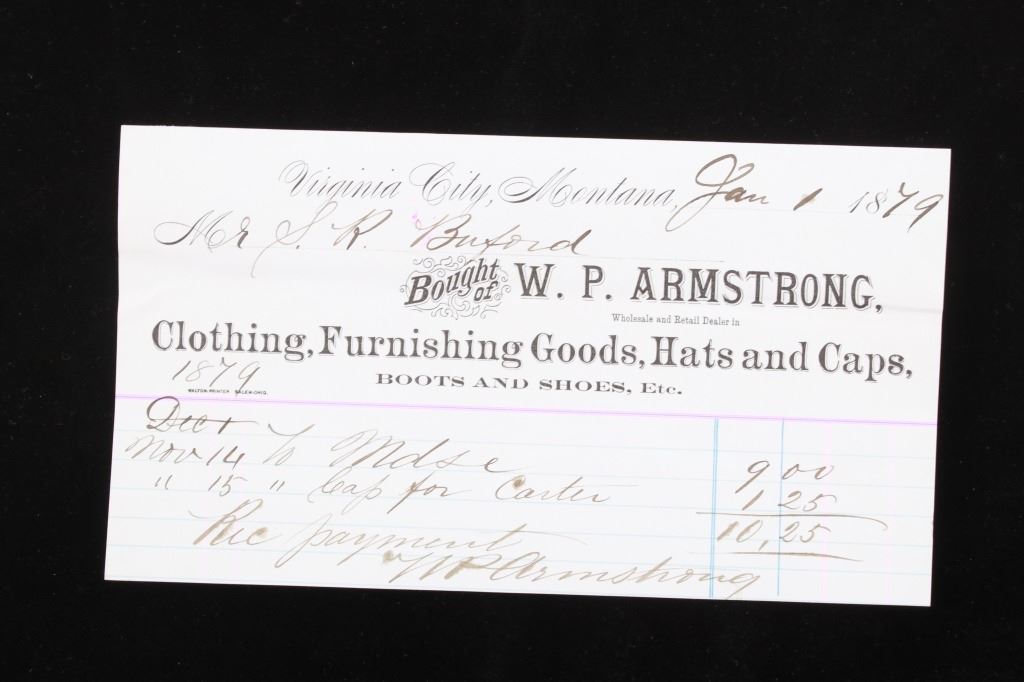 Virginia City, Montana, Jan 1 1879
Mr S. R. Buford
Bought of W. P. ARMSTRONG,
Wholesale and Retail Dealer in
Clothing, Furnishing Goods, Hats and Caps,
1879 BOOTS AND SHOES, Etc.
WALTON PRINTER SALEM OHIO.
Dec 1
Nov 14 To Mdse 9 00
" 15 " Cap for Carter 1 25
10,25
Rec payment
WP Armstrong